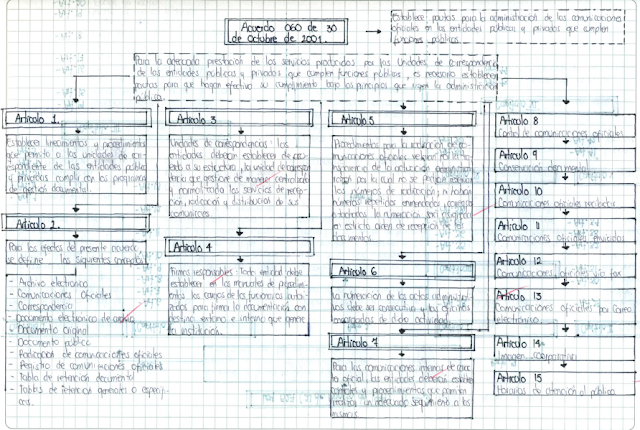 Acuerdo 060 de 30
de Octubre de 2001.
Establece pautas para la administración de las comunicaciones
oficiales en las entidades públicas y privadas que cumplen
funciones públicas.
Para la adecuada prestación de los servicios producidos por las Unidades de Correspondencia
de las entidades publicas y privadas que cumplen funciones publicas, es necesario establecer
pautas para que hagan efectivo su cumplimiento bajo los principios que rigen la administración
pública.
Artículo 1.
Establecer lineamientos y procedimientos
que permita a las unidades de
de las entidades públicas
y privadas, cumplir con los programas
de gestión documental.
Artículo 2.
Para los efectos del presente acuerdo
se define los siguientes conceptos
- Archivo electronico
- Comunicaciones Oficiales
- Correspondencia
- Documento electronico de archivo
- Documento Original
- Documento público
- Radicación de comunicaciones oficiales
- Registro de comunicaciones oficiales
- Tabla de retención documental
- Tablas de retencion generales o especifi-
cas.
Artículo 3
Unidades de correspondencia: las
entidades deberán establecer de acuer-
do a su estructura, la unidad de corresp
que gestione de manera centralizada
y normalizada los servicios de recep-
ción, radicación y distribución de sus
comunicaciones
Artículo 4
Firmas responsables: Toda entidad debe
establecer en los manuales de procedimi-
ento los cargos de los funcionarios autori-
zados para firmar la documentación con
destino externo e interno que genere
la institución.
Artículo 5
Procedimientos para la radicación de co-
municaciones oficiales: velaran por la tra-
nsparencia de la actuación administra-
razón por la cual no se podrán reservar
los números de radicación, ni habrán
números repetidos enmendados, corregidos
o tachados la numeración será asignada
en estricto orden de recepción de los
documentos.
Artículo 6
La numeración de los actos administrati-
vos debe ser consecutiva y las oficinas
encargadas de dicha actividad
Artículo 7
Para las comunicaciones internas de carac-
ter oficial, las entidades deberán establecer
controles y procedimientos que permitan
realizar un adecuado seguimiento a las
mismas.
Artículo 8
Control de comunicaciones oficiales
Artículo 9
Conservación documental
Artículo 10
Comunicaciones oficiales recibidas
Artículo 11
Comunicaciones oficiales enviadas
Artículo 12
Comunicaciones oficiales vía fax
Artículo 13
Comunicaciones oficiales por Correo
electronico
Artículo 14
Imagen corporativa
Artículo 15
Horarios de atención al público.